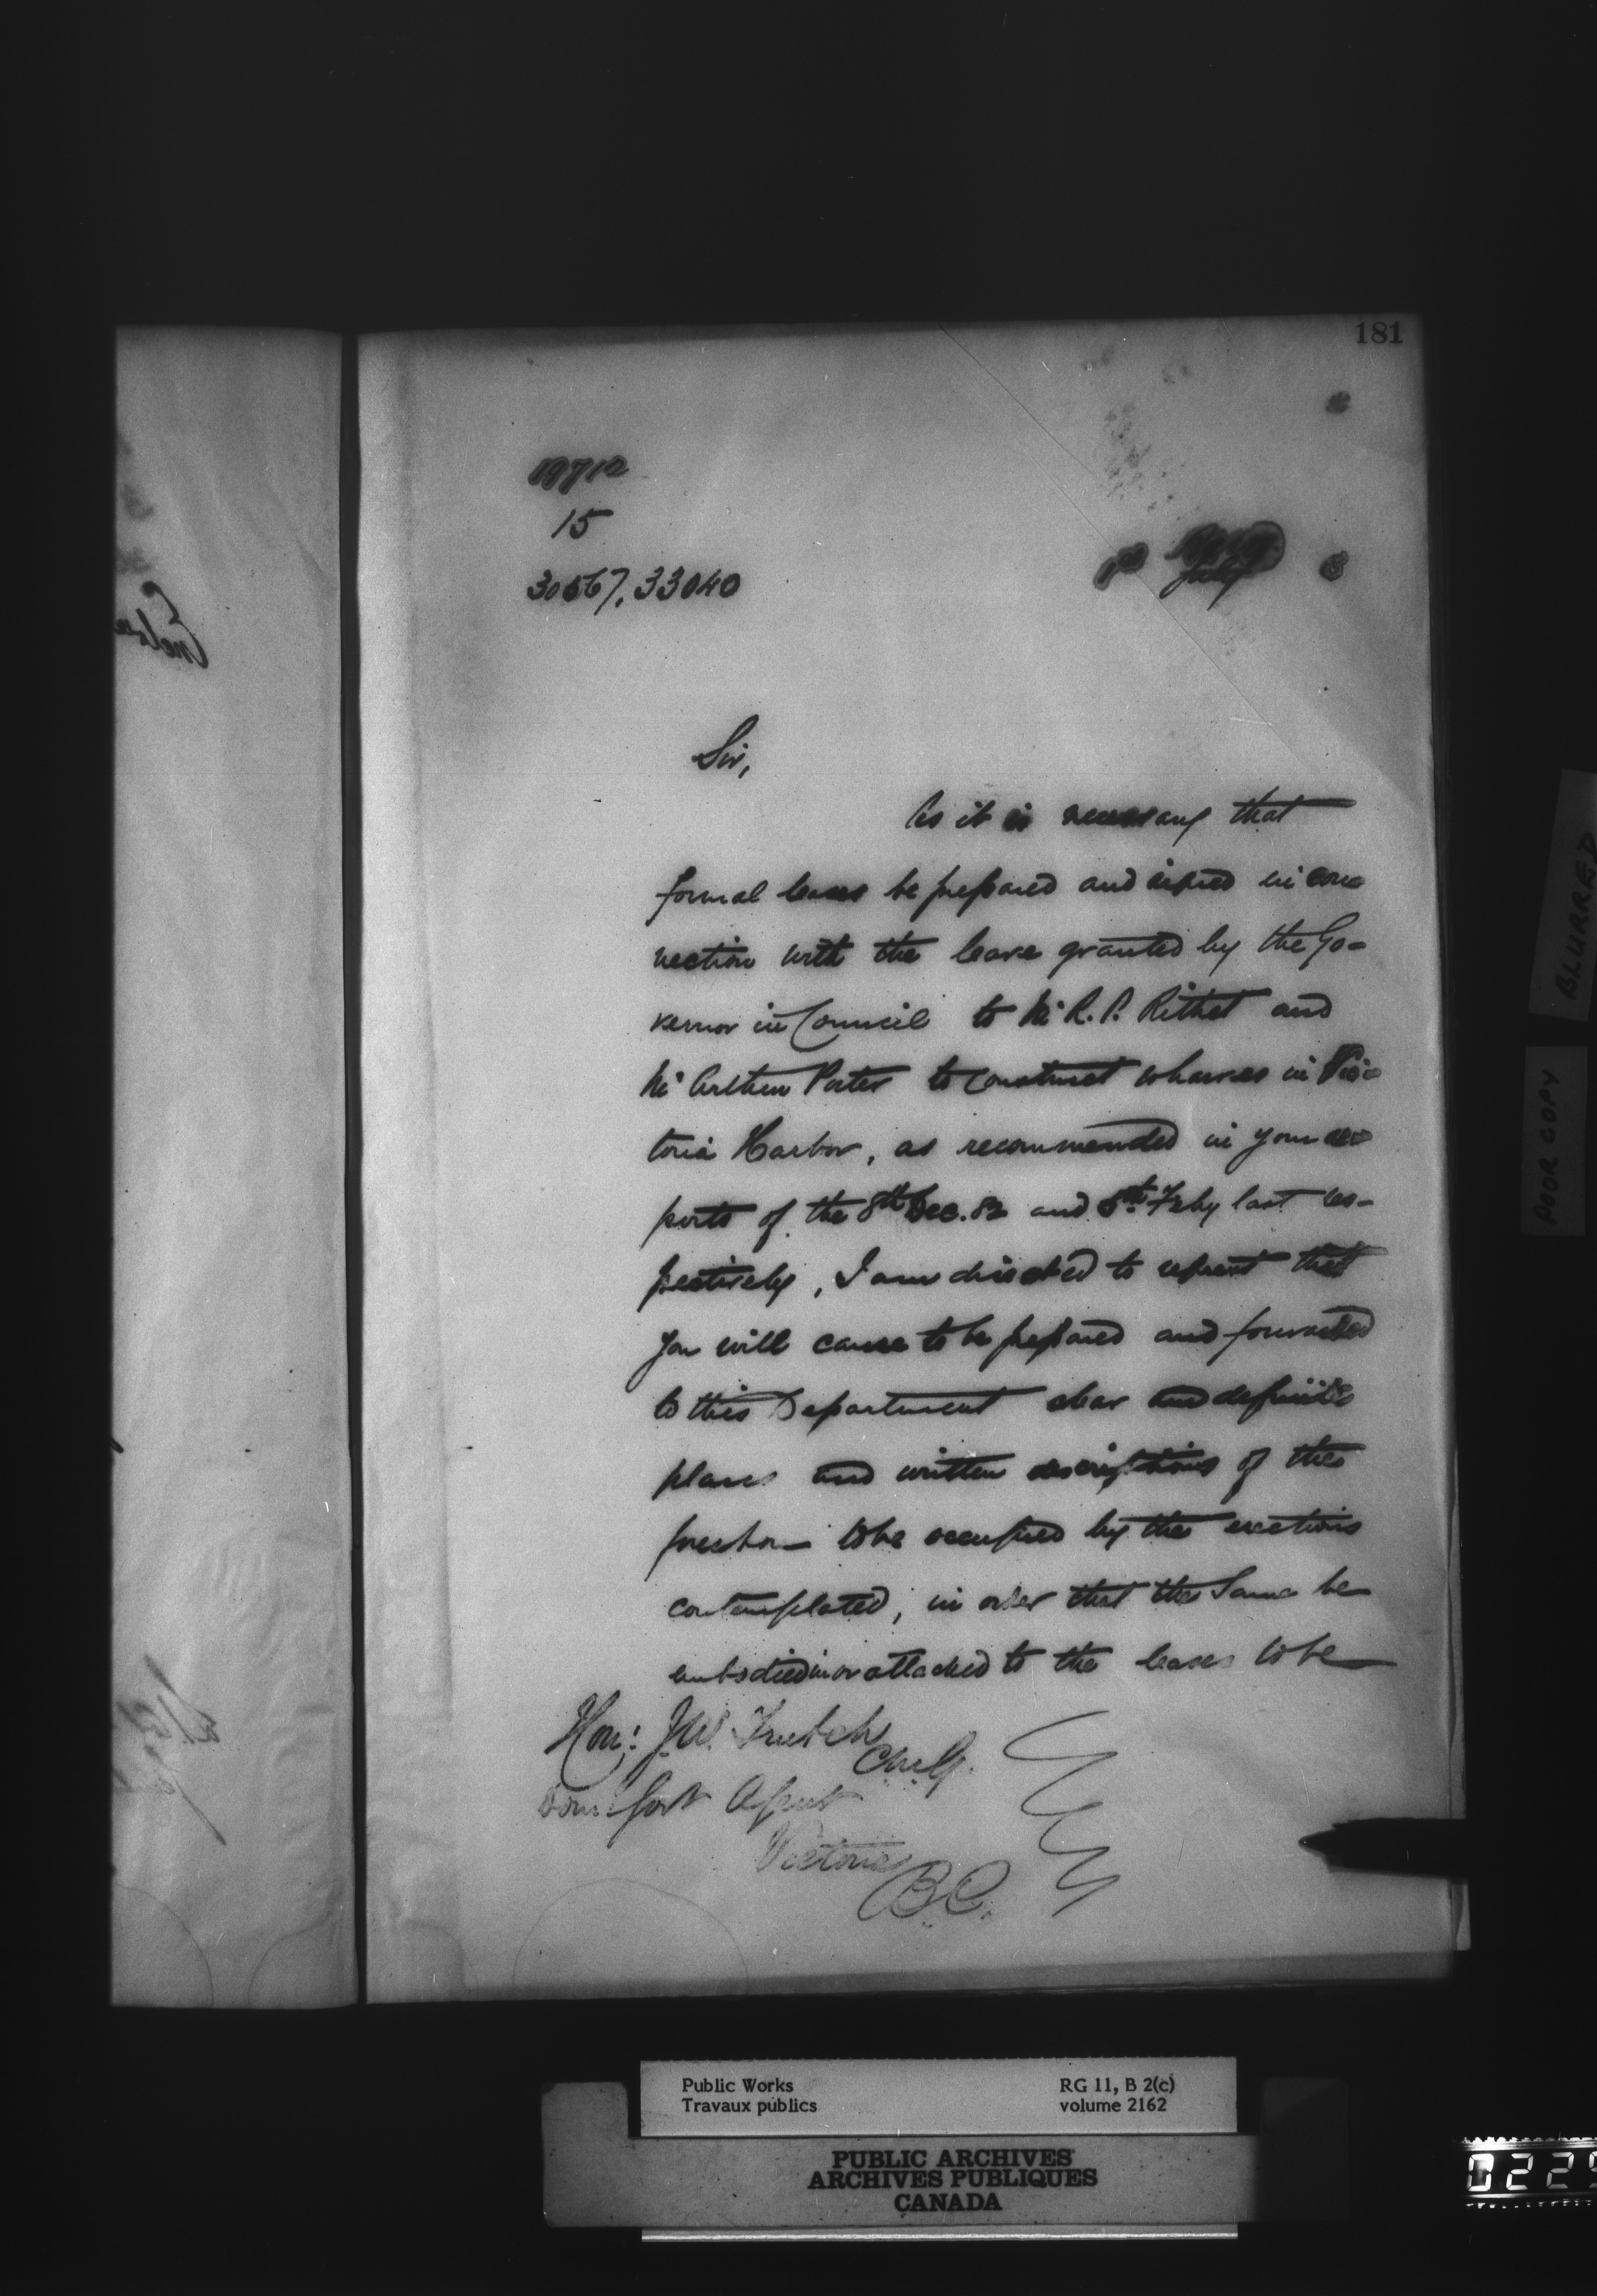 181
19712
15
30567, 33040
July 3
Sir,
As it is necessary that
formal leases be prepared and signed in con=
nection with the leave granted by the Go=
vernor in Council to Mr R. P. Rithet and
Mr Arthur Porter to construct wharves in Vic=
toria Harbor, as recommended in your re=
ports of the 8th Dec. 82 and 5th Feby last res=
pectively, I am directed to request that
you will cause to be prepared and forwarded
to this Department clear and definite
plans and written descriptions of the
foreshore to be occupied by the erections
contemplated, in order that the same be
embodied in or attached to the leases to be
Hon: J.W. Trutch
C.M.G.
Dom: Govt Agent
Victoria
B.C.
BLURRED
POOR COPY
Public Works
Travaux publics
RG 11, B 2(c)
volume 2162
PUBLIC ARCHIVES
ARCHIVES PUBLIQUES
CANADA
0225